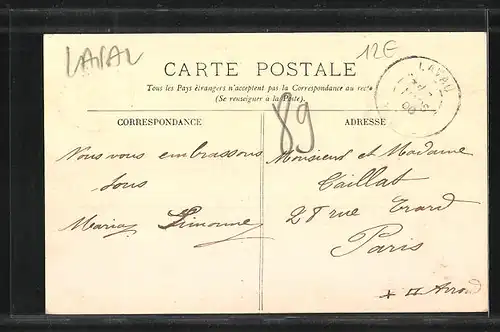 LAVAL
12E
CARTE POSTALE
Tous les Pays étrangers n'acceptent pas la Correspondance au recto
(Se renseigner à la Poste).
LAVAL
89
CORRESPONDANCE
ADRESSE
Nous vous embrassons
tous
Maria Simonne
Monsieur et Madame
Taillat
28 rue
Paris